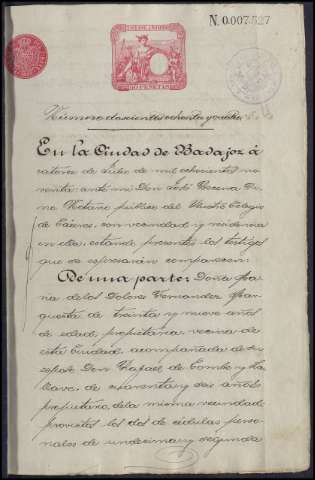 N. 0.007.527
Numero doscientos ochenta y cuatro
En la Ciudad de Badajoz á
catorce de Julio de mil ochocientos no
venta ante mi Don José
Notario público del Ilustre Colegio
de Cáceres, con vecindad y residencia
en ella, estando presentes los testigos
que se expresarán comparecen:
De una parte: Doña
de los Dolores Fernandez
de treinta y nueve años
de edad, propietaria vecina de
esta Ciudad, acompañada de su
esposo Don Rafael de
de cuarenta y seis años
propietario, de la misma vecindad
provistos los dos de cédulas perso
nales de undecima y segunda